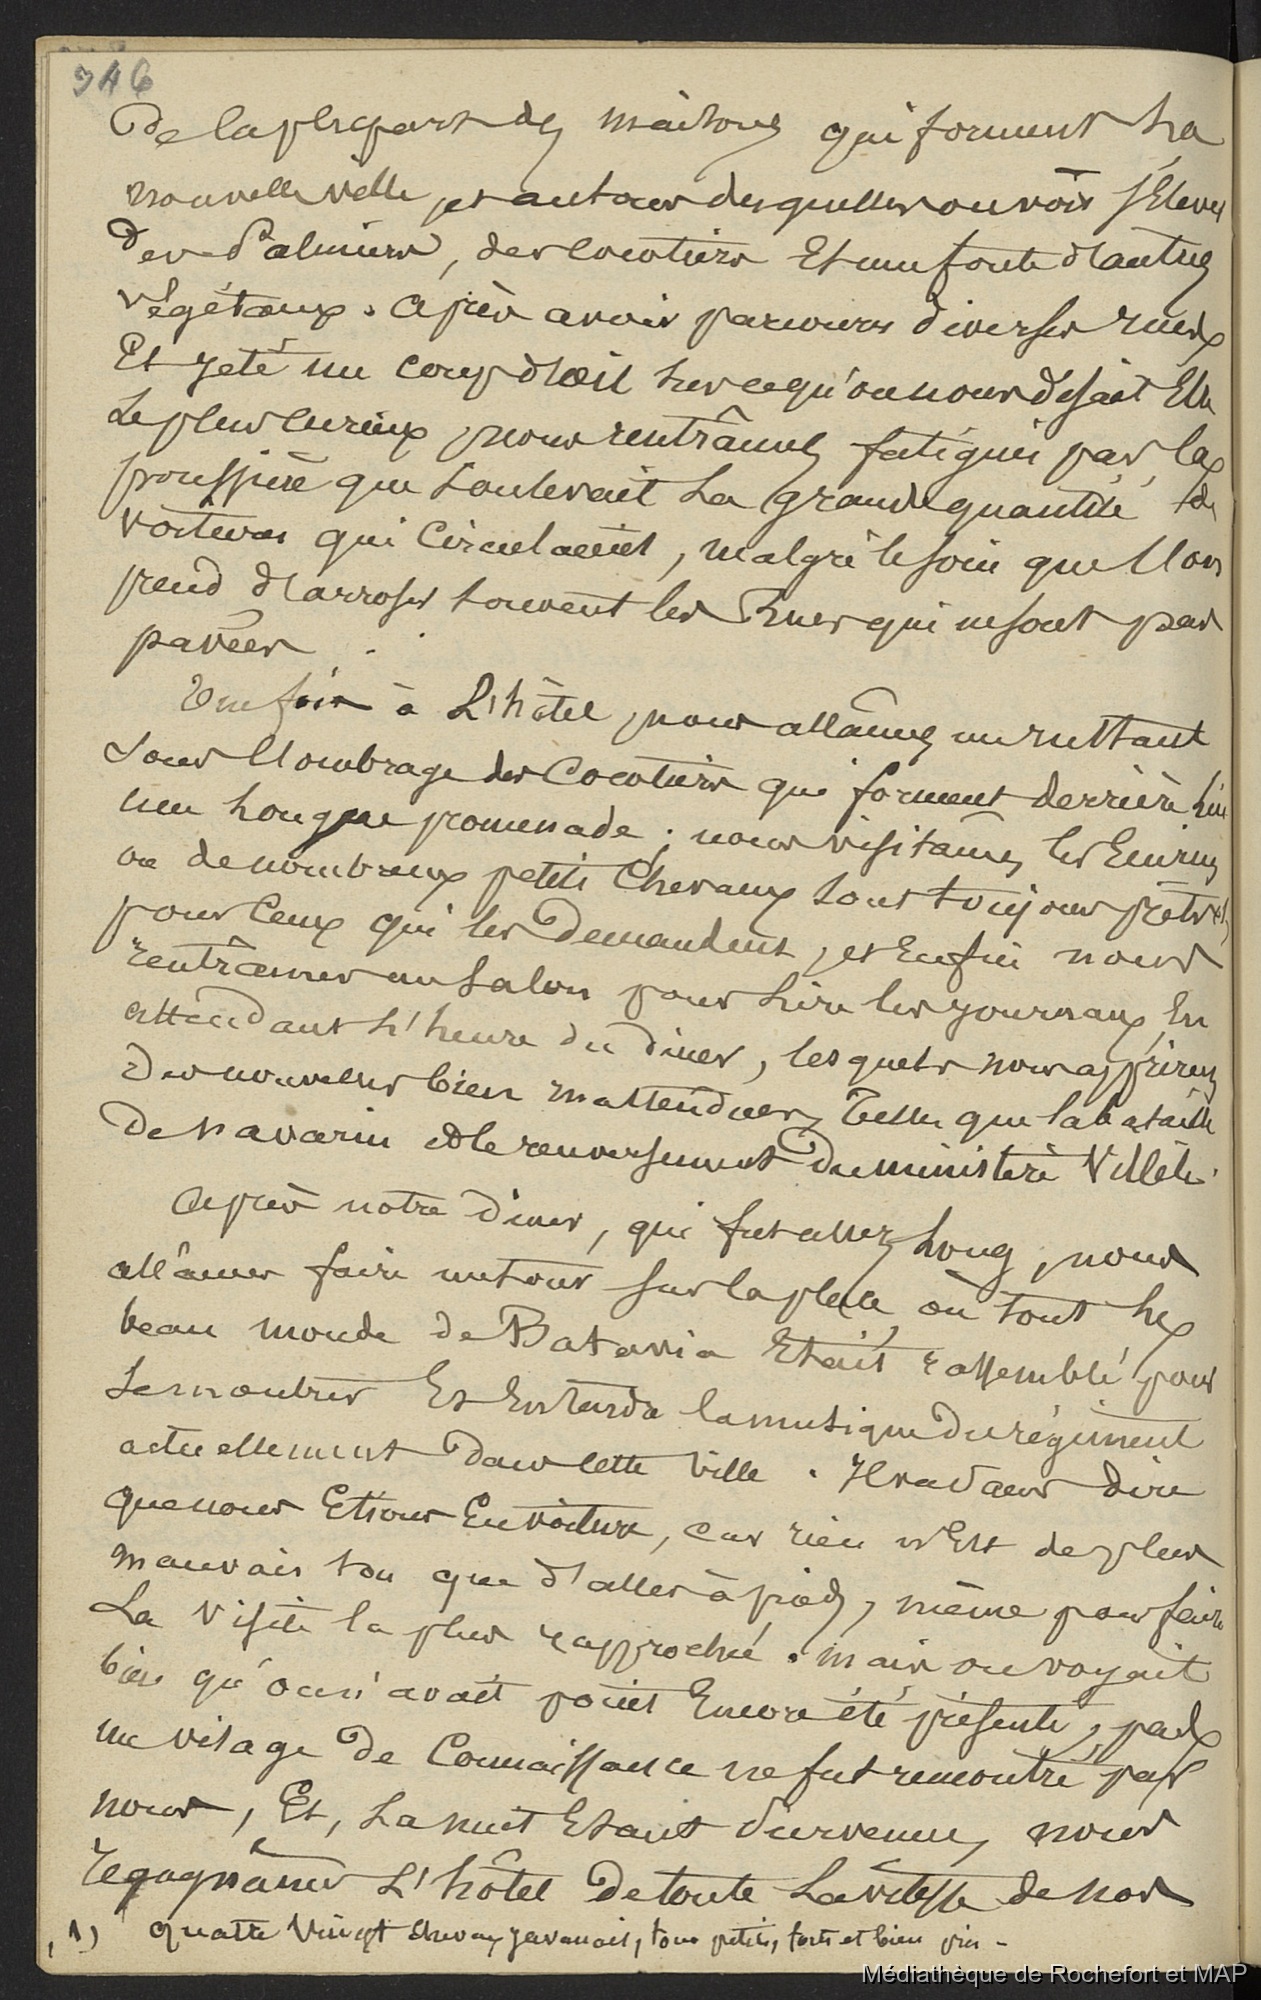 346
De la plupart des maisons qui forment La
nouvelle ville, et autour desquelles on voit s'Elever
Des Palmiers, des Cocotiers Et une foule d'autres
végétaux. Après avoir parcouru diverses rues
Et jeté un coup d'œil sur ce qu'on nous disait Etre
Le plus curieux, nous rentrâmes fatigués par la
poussière que soulevait La grande quantité de
voitures qui Circulaient, malgré le soin que l'on
prend d'arroser souvent les Rues qui ne sont pas
pavées.
Une fois à L'hôtel, nous allâmes un instant
Sous l'ombrage des Cocotiers qui forment derrière lui
une Longue promenade; nous visitâmes les Ecuries
où de nombreux petits Chevaux sont toujours prêts (1)
pour Ceux qui les Demandent, et Enfin nous
rentrâmes au Salon pour Lire les journaux, En
attendant L'heure du diner, lesquels nous apprirent
Des nouvelles bien inattendues, Telles que la bataille
De navarin et le renversement Du ministère Villèle.
Après notre diner, qui fut assez Long, nous
allâmes faire un tour sur la place où tout Le
beau monde de Batavia Etait rassemblé pour
Se montrer Et Entendre la musique Du régiment
actuellement Dans Cette ville. Il va sans dire
que nous Etions En voiture, car rien n'Est de plus
mauvais ton que d'aller à pied, même pour faire
La visite la plus rapprochée. Mais on voyait
bien qu'on n'avait point Encore été présenté, pas
un visage de Connaissance ne fut rencontré par
nous, Et, La nuit Etant Survenue, nous
regagnâmes L'hôtel De toute La vitesse de nos
(1) quatre Vingt chevaux javanais, tous petits, forts et bien pris.
Médiathèque de Rochefort et MAP